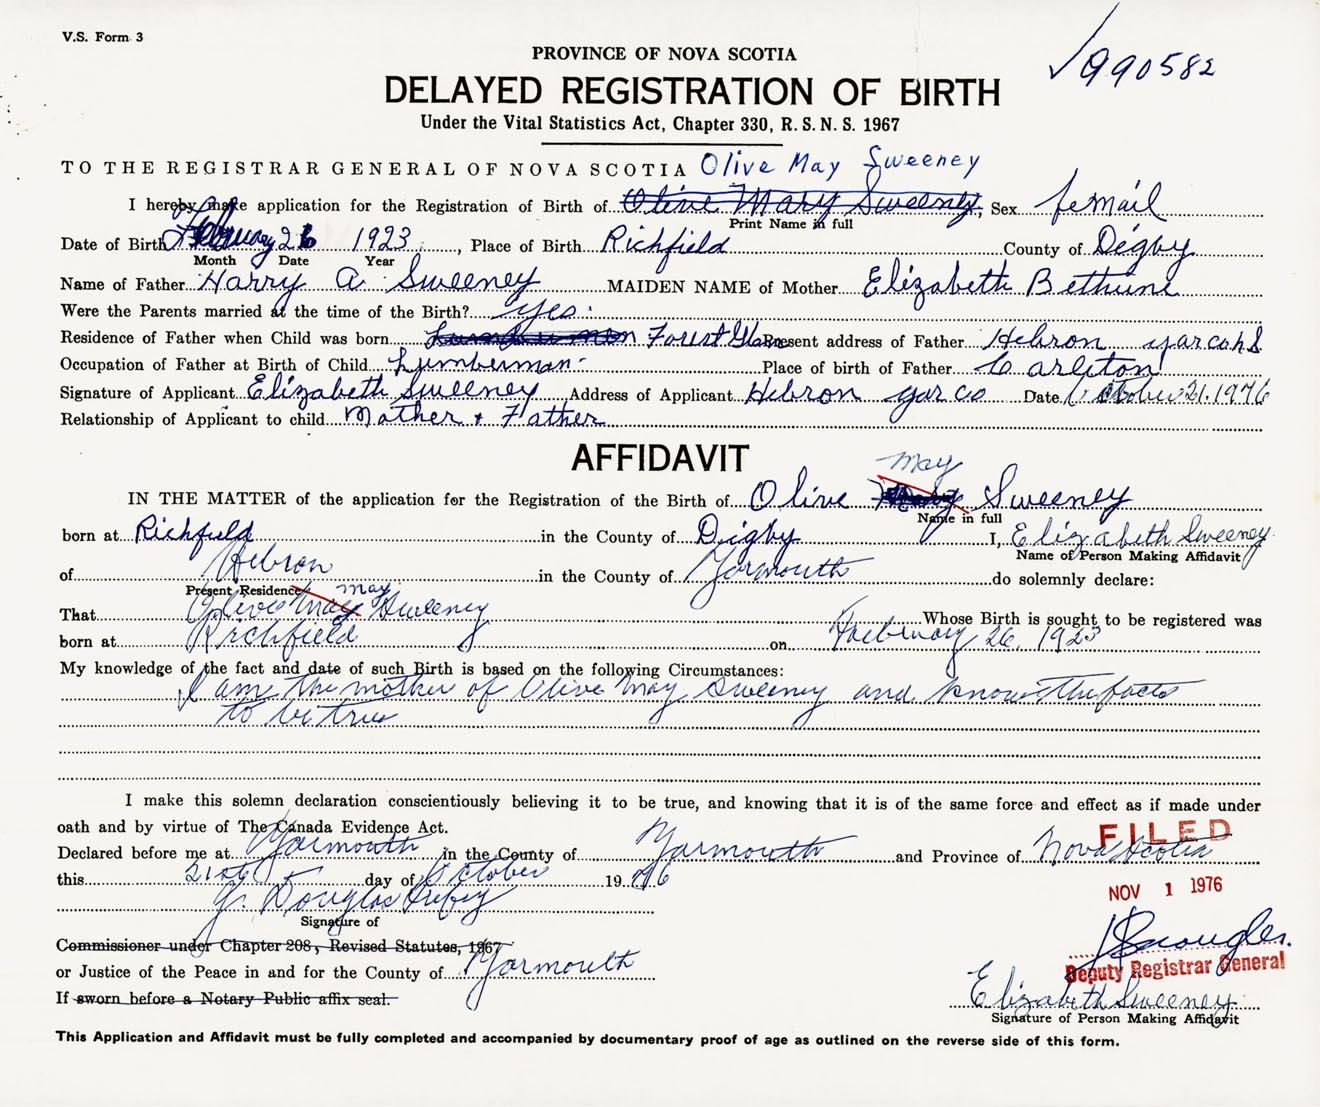 V.S. Form 3
990582
PROVINCE OF NOVA SCOTIA
DELAYED REGISTRATION OF BIRTH
Under the Vital Statistics Act, Chapter 330, R. S. N. S. 1967
TO THE REGISTRAR GENERAL OF NOVA SCOTIA Olive May Sweeney
I hereby make application for the Registration of Birth of Olive Mary Sweeney, Sex femail
Print Name in full
Date of Birth February 26 1923, Place of Birth Richfield County of Digby
Month Date Year
Name of Father Harry A. Sweeney MAIDEN NAME of Mother Elizabeth Bethune
Were the Parents married at the time of the Birth? yes.
Residence of Father when Child was born Forest Glen Present address of Father Hebron yar co N S
Occupation of Father at Birth of Child Lumberman Place of birth of Father Carleton
Signature of Applicant Elizabeth Sweeney Address of Applicant Hebron yar co Date October 21. 1976
Relationship of Applicant to child Mother & Father
AFFIDAVIT
May
IN THE MATTER of the application for the Registration of the Birth of Olive Mary Sweeney
Name in full
born at Richfield in the County of Digby I, Elizabeth Sweeney
Name of Person Making Affidavit
of Hebron in the County of Yarmouth do solemnly declare:
Present Residence
May
That Olive May Sweeney Whose Birth is sought to be registered was
born at Richfield on Febuary 26, 1923
My knowledge of the fact and date of such Birth is based on the following Circumstances:
I am the mother of Olive May Sweeney and know the facts
to be true
I make this solemn declaration conscientiously believing it to be true, and knowing that it is of the same force and effect as if made under
oath and by virtue of The Canada Evidence Act.
FILED
Declared before me at Yarmouth in the County of Yarmouth and Province of Nova Scotia
this 21st day of October 1976
NOV 1 1976
J. Douglas
Signature of
Commissioner under Chapter 208, Revised Statutes, 1967
or Justice of the Peace in and for the County of Yarmouth
Deputy Registrar General
If sworn before a Notary Public affix seal.
Elizabeth Sweeney
Signature of Person Making Affidavit
This Application and Affidavit must be fully completed and accompanied by documentary proof of age as outlined on the reverse side of this form.